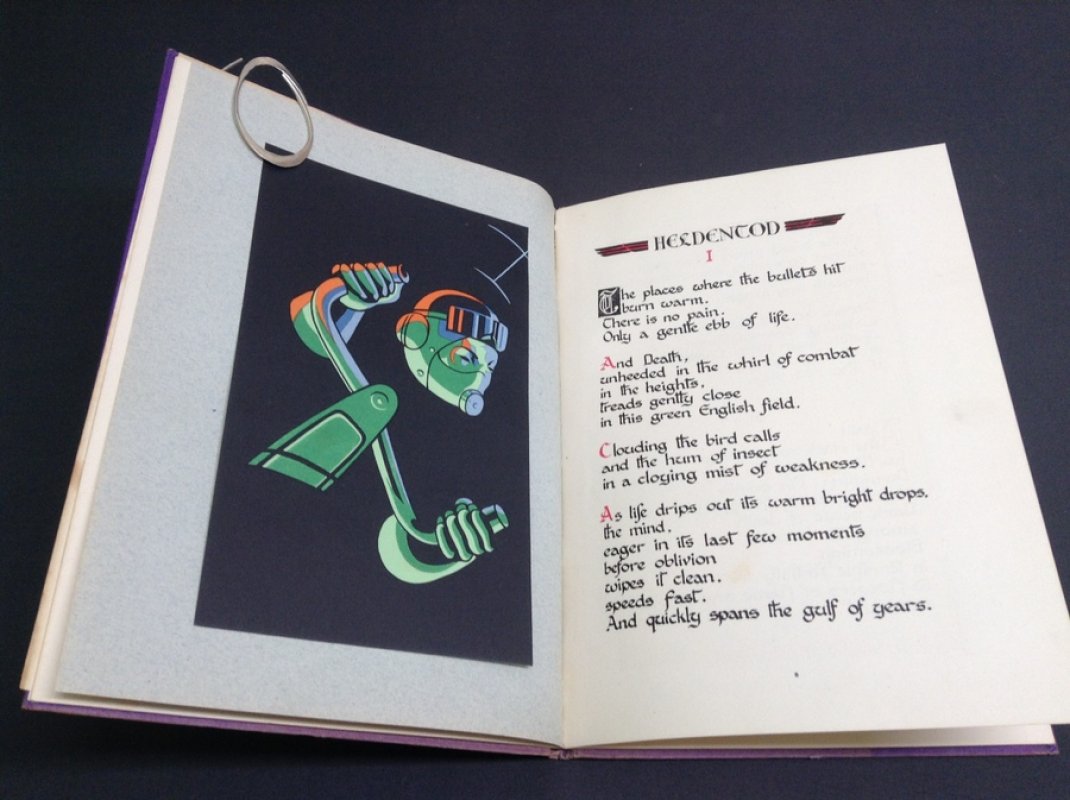 HELDENTOD
I
The places where the bullets hit
burn warm.
There is no pain.
Only a gentle ebb of life.
And Death,
unheeded in the whirl of combat
in the heights,
treads gently close
in this green English field.
Clouding the bird calls
and the hum of insect
in a cloying mist of weakness.
As life drips out its warm bright drops,
the mind,
eager in its last few moments
before oblivion
wipes it clean,
speeds fast.
And quickly spans the gulf of years.